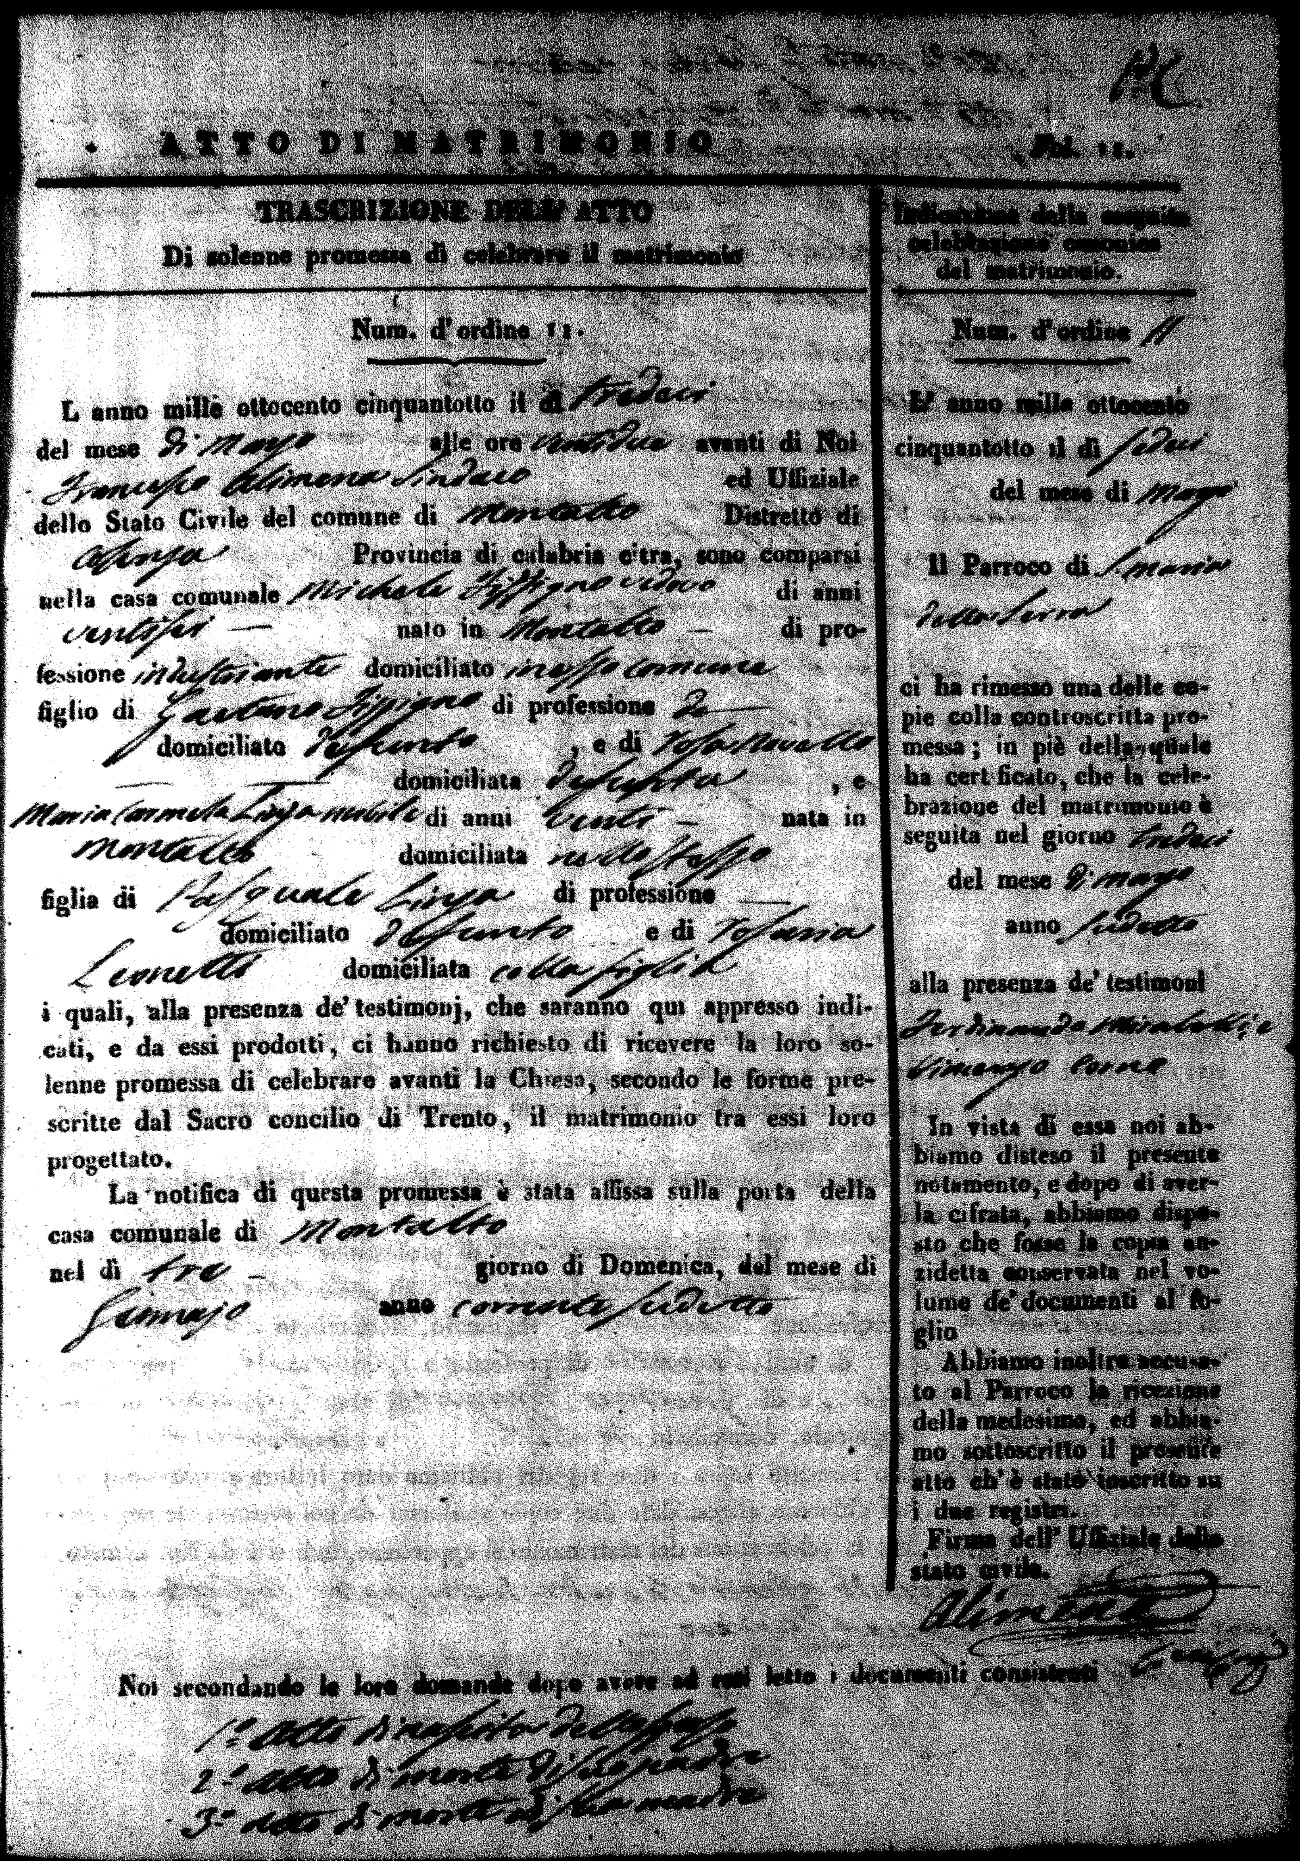 ATTO DI MATRIMONIO
Fol. 11.
TRASCRIZIONE DELL' ATTO
Di solenne promessa di celebrare il matrimonio
Num. d'ordine 11.
L anno mille ottocento cinquantotto il di tredeci
del mese di Mago alle ore ventidue avanti di Noi
Francesco Alimena Sindaco ed Uffiziale
dello Stato Civile del comune di Montalto Distretto di
Cosenza Provincia di calabria citra, sono comparsi
nella casa comunale Michele vedovo di anni
ventisei nato in Montalto di pro-
fessione industriante domiciliato in esso comune
figlio di Gaetano di professione
domiciliato defunto, e di Rosa Novello
domiciliata defunta, e
Maria Carmela nubile di anni venti nata in
Montalto domiciliata nello stesso
figlia di Pasquale di professione
domiciliato defunto e di Rosaria
Leonetti domiciliata colla figlia
i quali, alla presenza de' testimonj, che saranno qui appresso indi-
cati, e da essi prodotti, ci hanno richiesto di ricevere la loro so-
lenne promessa di celebrare avanti la Chiesa, secondo le forme pre-
scritte dal Sacro concilio di Trento, il matrimonio tra essi loro
progettato.
La notifica di questa promessa è stata affissa sulla porta della
casa comunale di Montalto
nel dì tre giorno di Domenica, del mese di
Gennajo anno corrente sudetto
Indicazione della seguita
celebrazione canonica
del matrimonio.
Num. d'ordine 11
L' anno mille ottocento
cinquantotto il dì sedeci
del mese di Mago
Il Parroco di S. Maria
della Serra
ci ha rimesso una delle co-
pie colla controscritta pro-
messa; in piè della quale
ha certificato, che la cele-
brazione del matrimonio è
seguita nel giorno tredeci
del mese di Magio
anno sudetto
alla presenza de' testimoni
Ferdinando Mirabelli, e
Vincenzo
In vista di essa noi ab-
biamo disteso il presente
notamento, e dopo di aver-
la cifrata, abbiamo dispo-
sto che fosse la copia an-
zidetta conservata nel vo-
lume de' documenti al fo-
glio
Abbiamo inoltre accusa-
to al Parroco la ricezione
della medesima, ed abbia-
mo sottoscritto il presente
atto ch' è stato inscritto su
i due registri.
Firma dell' Uffiziale dello
stato civile.
Alimena
Noi secondando le loro domande dopo avere ad essi letto i documenti consistenti
1.° Atto di nascita dello sposo
2.° Atto di morte di suo padre
3.° Atto di morte di sua madre